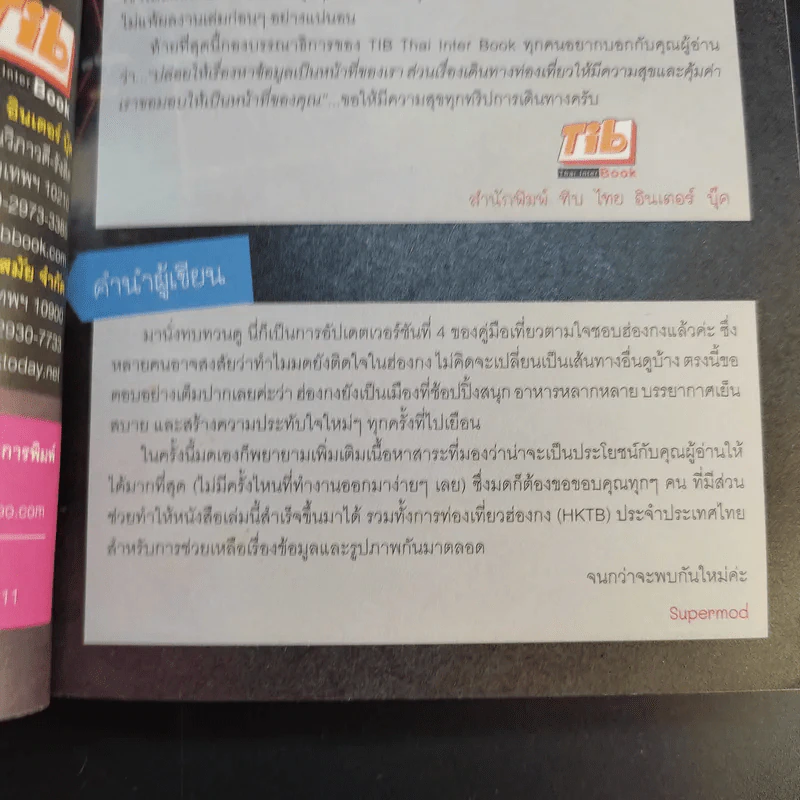 ไม่แพ้ผลงานเล่มก่อนๆ อย่างแน่นอน
ท้ายที่สุดนี้กองบรรณาธิการของ TIB Thai Inter Book ทุกคนอยากบอกกับคุณผู้อ่าน
ว่า... "ปล่อยให้เรื่องหาข้อมูลเป็นหน้าที่ของเรา ส่วนเรื่องเดินทางท่องเที่ยวให้มีความสุขและคุ้มค่า
เราขอมอบให้เป็นหน้าที่ของคุณ"...ขอให้มีความสุขทุกทริปการเดินทางครับ
Tib
Thai Inter Book
สำนักพิมพ์ ทิบ ไทย อินเตอร์ บุ๊ค
คำนำผู้เขียน
มานั่งทบทวนดู นี่ก็เป็นการอัปเดตเวอร์ชันที่ 4 ของคู่มือเที่ยวตามใจชอบฮ่องกงแล้วค่ะ ซึ่ง
หลายคนอาจสงสัยว่าทำไมมดยังติดใจในฮ่องกง ไม่คิดจะเปลี่ยนเป็นเส้นทางอื่นดูบ้าง ตรงนี้ขอ
ตอบอย่างเต็มปากเลยค่ะว่า ฮ่องกงยังเป็นเมืองที่ช้อปปิ้งสนุก อาหารหลากหลาย บรรยากาศเย็น
สบาย และสร้างความประทับใจใหม่ๆ ทุกครั้งที่ไปเยือน
ในครั้งนี้มดเองก็พยายามเพิ่มเติมเนื้อหาสาระที่มองว่าน่าจะเป็นประโยชน์กับคุณผู้อ่านให้
ได้มากที่สุด (ไม่มีครั้งไหนที่ทำงานออกมาง่ายๆ เลย) ซึ่งมดก็ต้องขอขอบคุณทุกๆ คน ที่มีส่วน
ช่วยทำให้หนังสือเล่มนี้สำเร็จขึ้นมาได้ รวมทั้งการท่องเที่ยวฮ่องกง (HKTB) ประจำประเทศไทย
สำหรับการช่วยเหลือเรื่องข้อมูลและรูปภาพกันมาตลอด
จนกว่าจะพบกันใหม่ค่ะ
Supermod
Tib
Inter Book
อินเตอร์ บุ๊ค
เทพฯ 10210
-2973-
bbook.com
สมัย จำกัด
เทพฯ 10900
2930-7733
stoday.net
การพิมพ์
oo.com
11